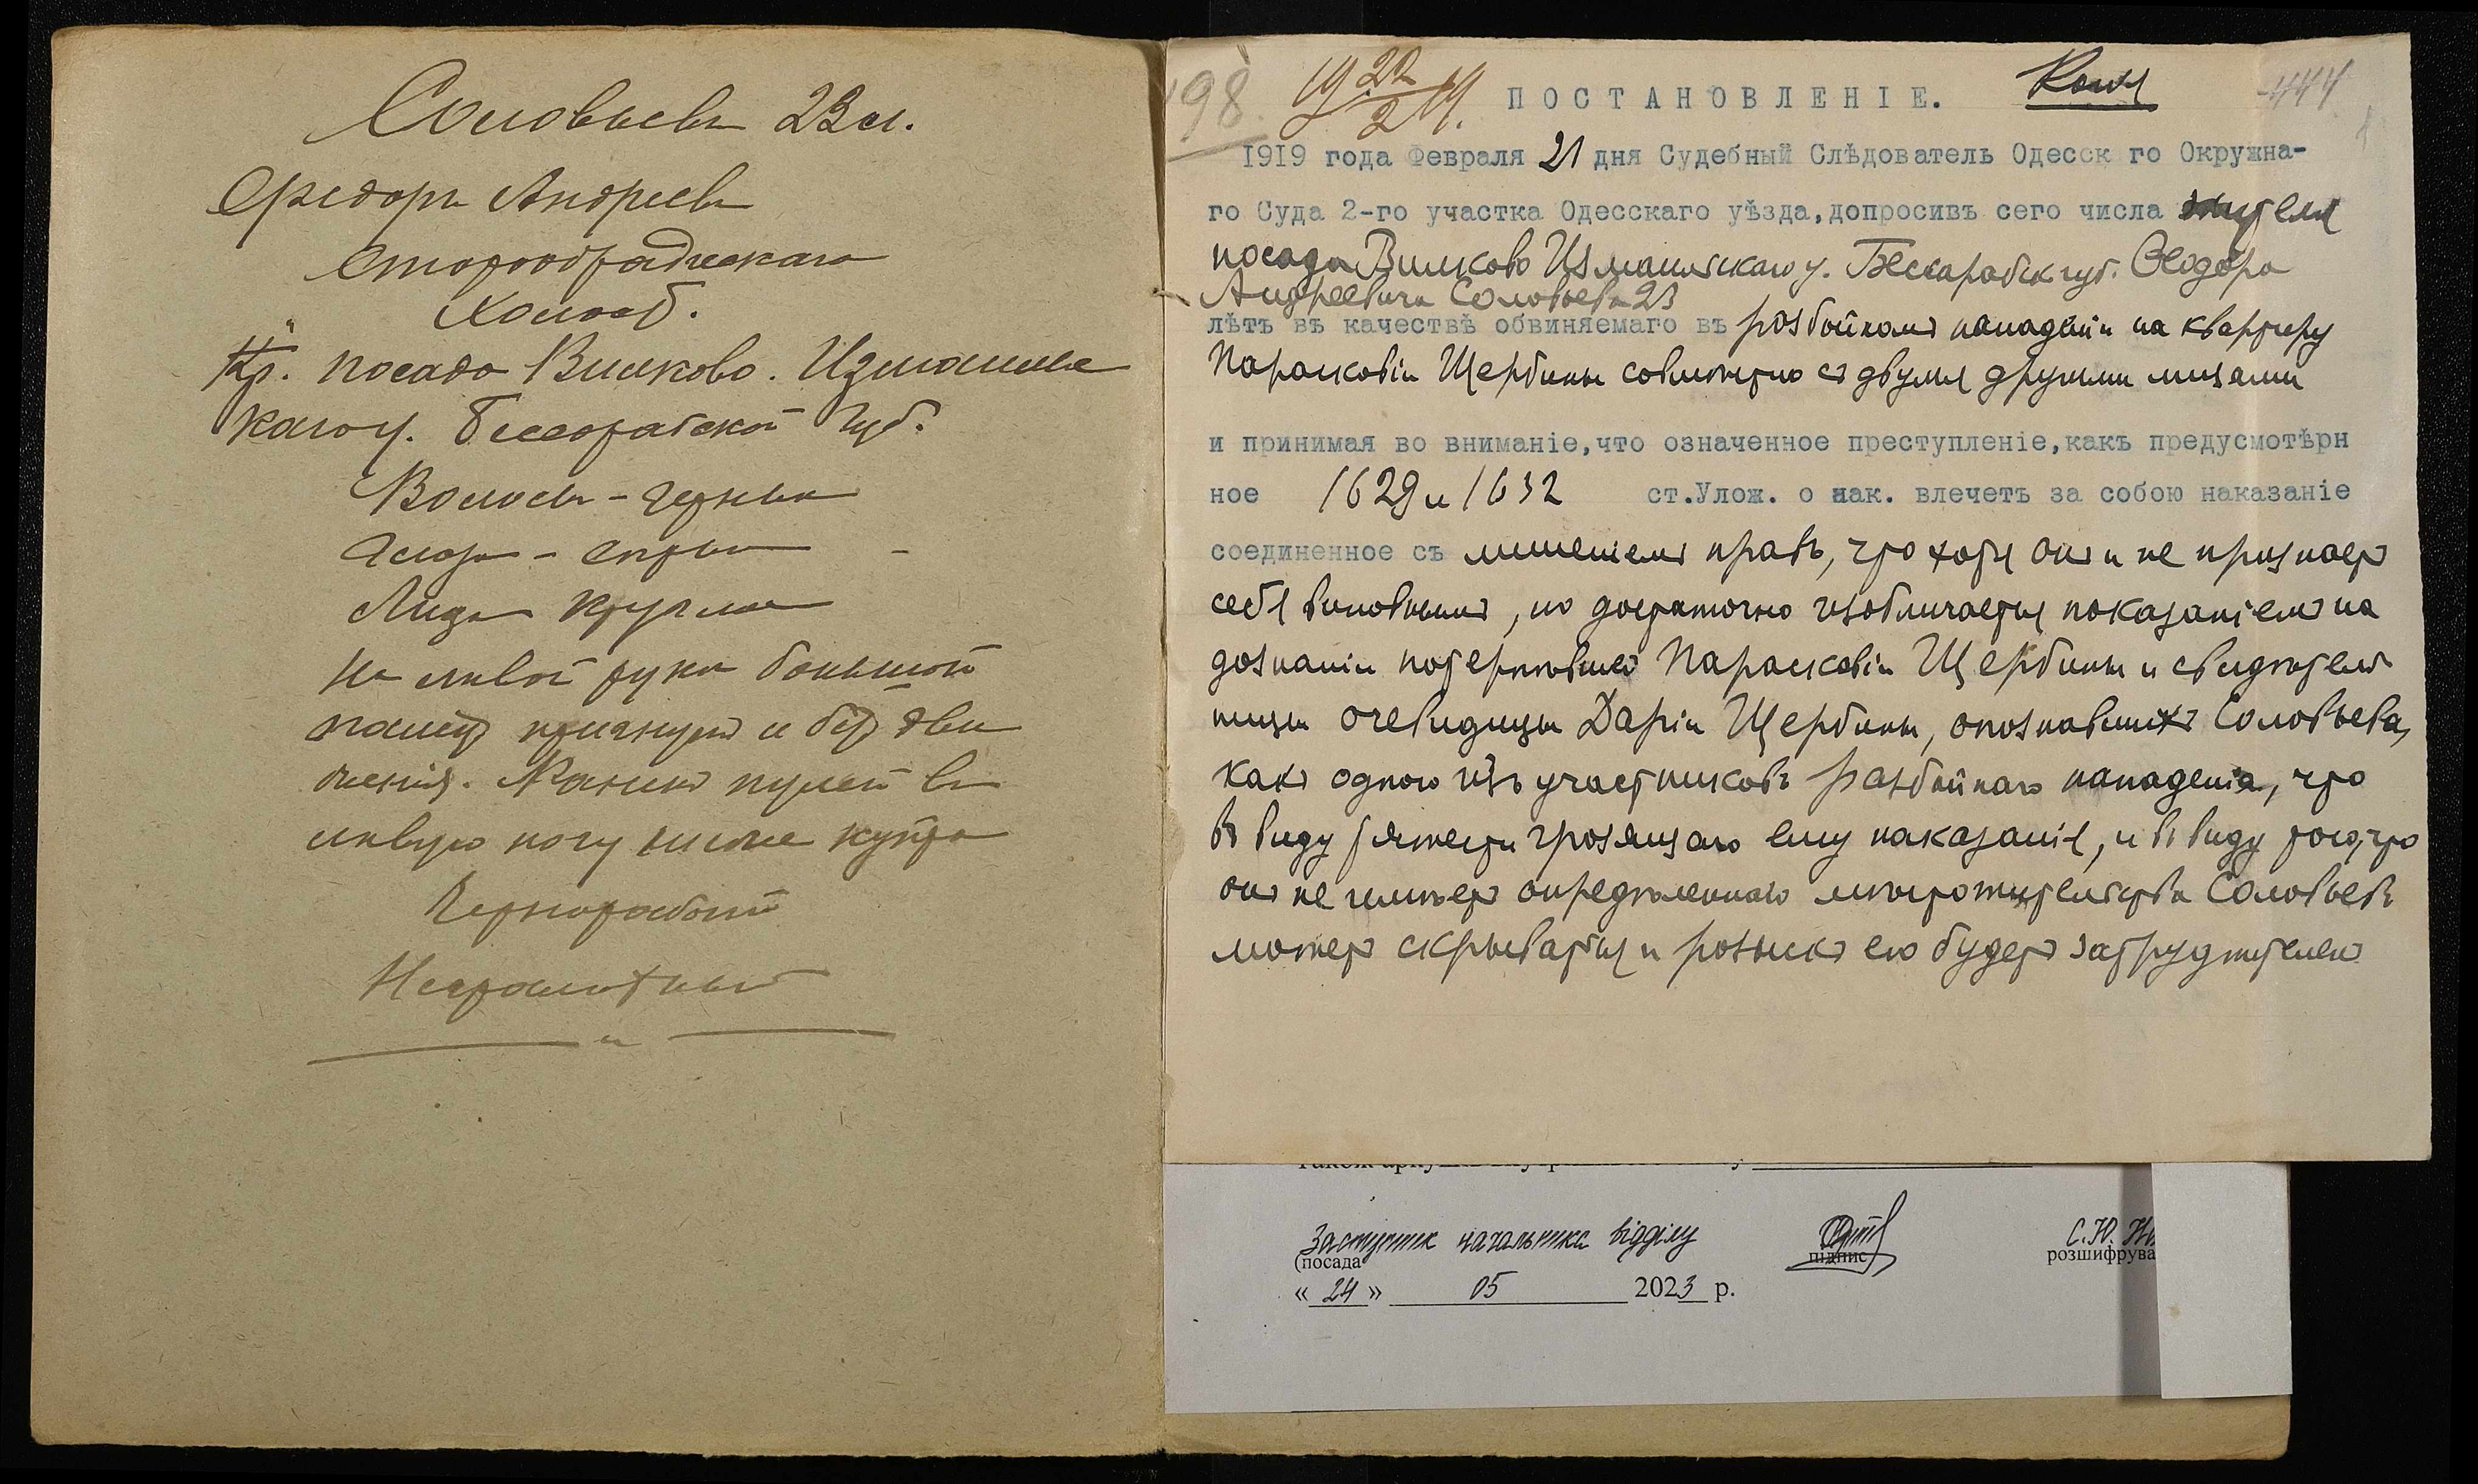 Соловьевъ 23 л.
Федоръ Андреевъ
старообрядческаго
Холост.
Кр. посада Вилково. Измаильс
каго у. Бессарабской Губ.
Волосы - черные
Глаза - серые -
Лицо круглое
На левой руки большой
палец и без дви
жения. Ранен пулей в
левую ногу ниже
Чернорабочий
Неграмотный
"
98. 19 22/2 19. ПОСТАНОВЛЕНІЕ. Копія 444
1919 года Февраля 21 дня Судебный Слѣдователь Одесск го Окружна-
го Суда 2-го участка Одесскаго уѣзда,допросивъ сего числа жителя
посада Вилково Измаильскаго у. Бессарабск. губ. Ѳеодора
Андреевича Соловьева 23
лѣтъ въ качествѣ обвиняемаго въ разбойномъ нападеніи на квартиру
Параскевіи Щербины совмѣстно съ двумя другими лицами
и принимая во вниманіе,что означенное преступленіе,какъ предусмотѣрн
ное 1629 и 1632 ст.Улож. о нак. влечетъ за собою наказаніе
соединенное съ лишеніемъ правъ, что хотя онъ и не признает
себя виновнымъ, но достаточно изобличается показаніемъ на
дознаніи потерпѣвшей Параскевіи Щербины и свидѣтель
ницы очевидицы Даріи Щербины, опознавшихъ Соловьева,
какъ одного изъ участниковъ разбойнаго нападенія, что
въ виду тяжести грозящаго ему наказанія, и въ виду того,что
онъ не имѣетъ опредѣленнаго мѣстожительства Соловьевъ
можетъ скрываться и розыскъ его будетъ затруднителенъ
Заступник начальника відділу
(посада підпис розшифрува
С.Ю.
« 24 » 05 2023 р.